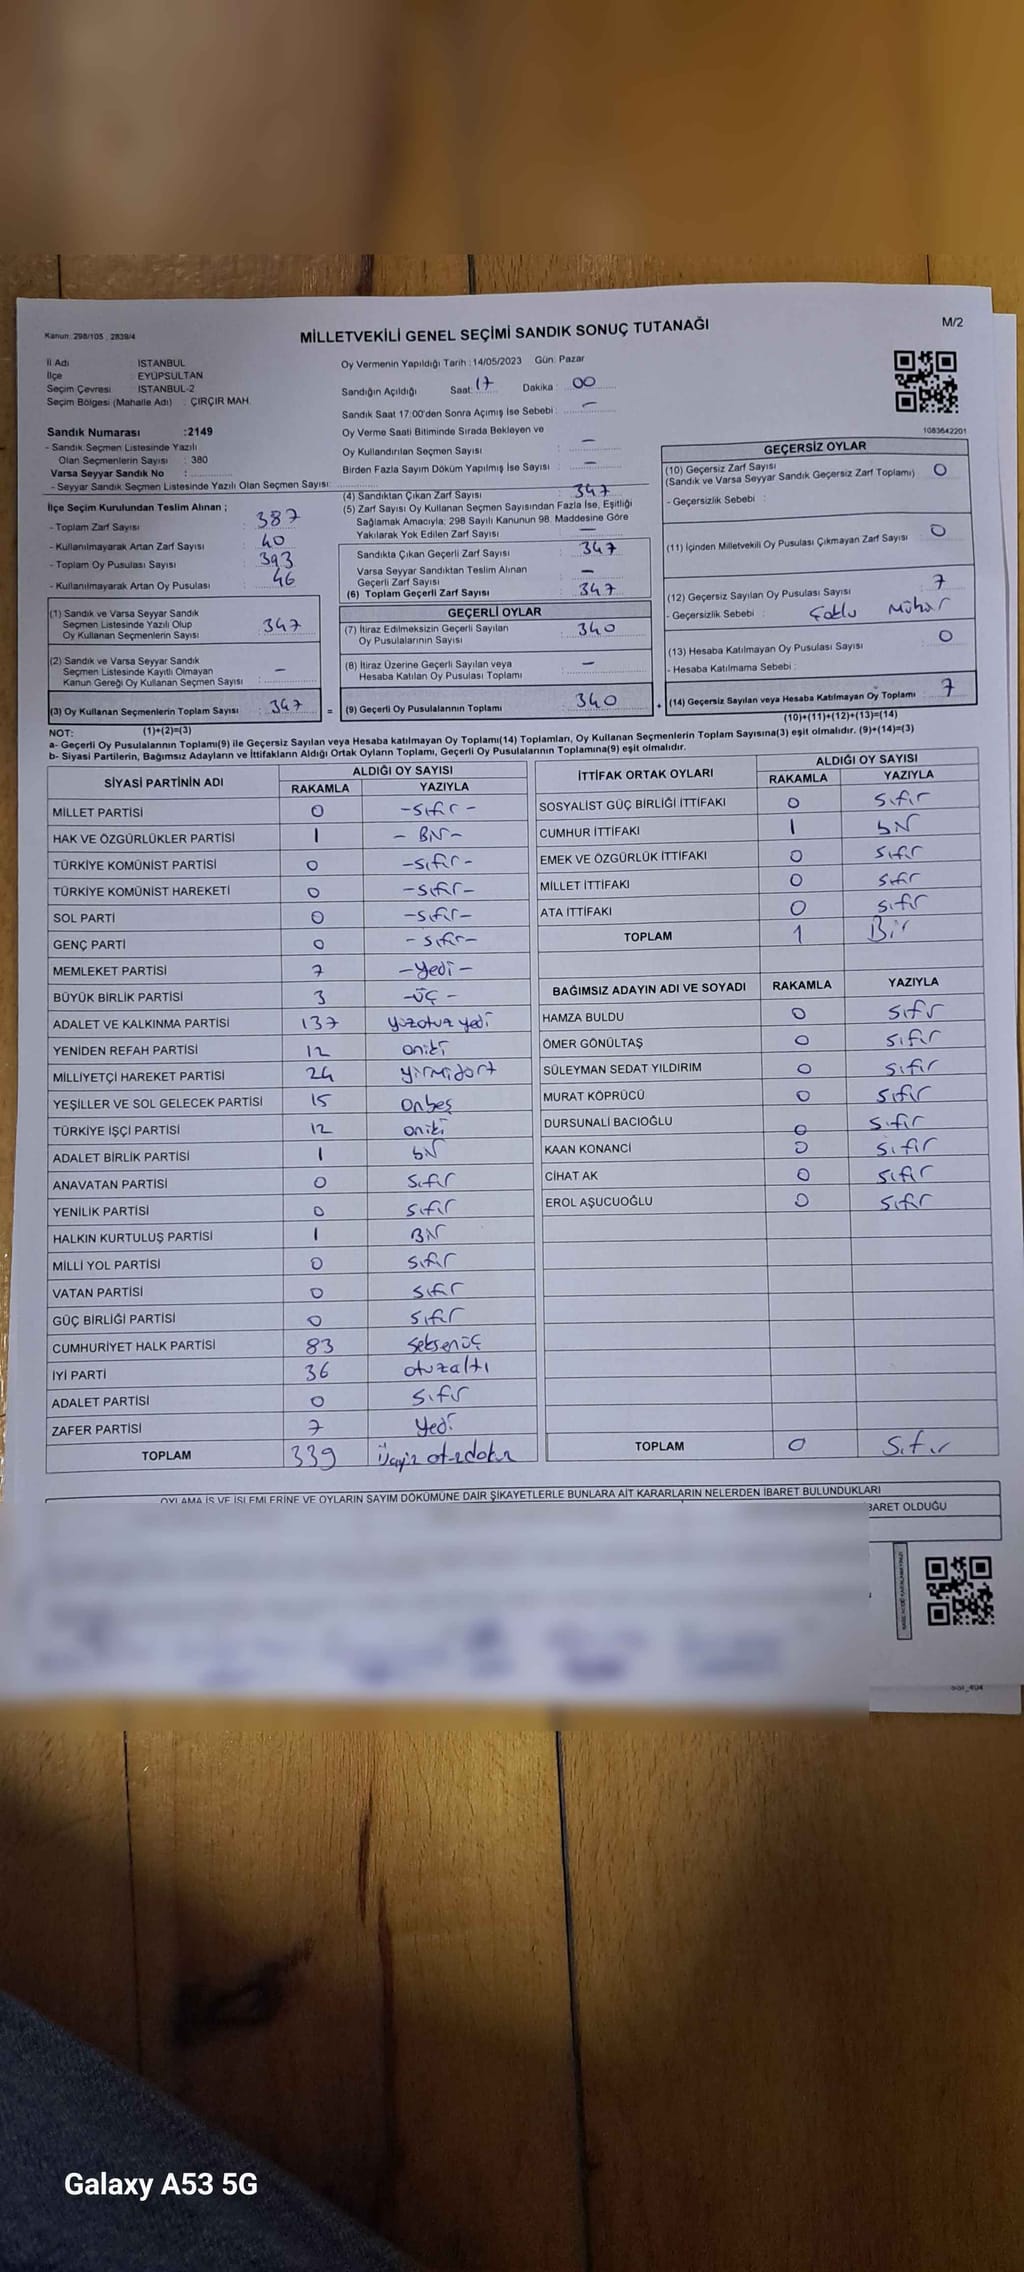 Kanun: 298/105 , 2839/4
MİLLETVEKİLİ GENEL SEÇİMİ SANDIK SONUÇ TUTANAĞI
M/2
İl Adı : İSTANBUL
İlçe : EYÜPSULTAN
Seçim Çevresi : İSTANBUL-2
Seçim Bölgesi (Mahalle Adı) : ÇIRÇIR MAH.
Oy Vermenin Yapıldığı Tarih : 14/05/2023 Gün: Pazar
Sandığın Açıldığı Saat: 17 Dakika : 00
Sandık Saat 17:00'den Sonra Açılmış İse Sebebi : —
Sandık Numarası :2149
- Sandık Seçmen Listesinde Yazılı
Olan Seçmenlerin Sayısı : 380
Varsa Seyyar Sandık No :
- Seyyar Sandık Seçmen Listesinde Yazılı Olan Seçmen Sayısı:
Oy Verme Saati Bitiminde Sırada Bekleyen ve
Oy Kullandırılan Seçmen Sayısı : —
Birden Fazla Sayım Döküm Yapılmış İse Sayısı : —
1083642201
İlçe Seçim Kurulundan Teslim Alınan ;
- Toplam Zarf Sayısı : 387
- Kullanılmayarak Artan Zarf Sayısı : 40
- Toplam Oy Pusulası Sayısı : 393
- Kullanılmayarak Artan Oy Pusulası : 46
(1) Sandık ve Varsa Seyyar Sandık
Seçmen Listesinde Yazılı Olup
Oy Kullanan Seçmenlerin Sayısı : 347
(2) Sandık ve Varsa Seyyar Sandık
Seçmen Listesinde Kayıtlı Olmayan
Kanun Gereği Oy Kullanan Seçmen Sayısı : —
(3) Oy Kullanan Seçmenlerin Toplam Sayısı : 347 =
(1)+(2)=(3)
(4) Sandıktan Çıkan Zarf Sayısı : 347
(5) Zarf Sayısı Oy Kullanan Seçmen Sayısından Fazla İse, Eşitliği
Sağlamak Amacıyla; 298 Sayılı Kanunun 98. Maddesine Göre
Yakılarak Yok Edilen Zarf Sayısı : —
Sandıkta Çıkan Geçerli Zarf Sayısı : 347
Varsa Seyyar Sandıktan Teslim Alınan
Geçerli Zarf Sayısı : —
(6) Toplam Geçerli Zarf Sayısı : 347
GEÇERLİ OYLAR
(7) İtiraz Edilmeksizin Geçerli Sayılan
Oy Pusulalarının Sayısı : 340
(8) İtiraz Üzerine Geçerli Sayılan veya
Hesaba Katılan Oy Pusulası Toplamı : —
(9) Geçerli Oy Pusulalarının Toplamı : 340 +
GEÇERSİZ OYLAR
(10) Geçersiz Zarf Sayısı : 0
(Sandık ve Varsa Seyyar Sandık Geçersiz Zarf Toplamı)
- Geçersizlik Sebebi :
(11) İçinden Milletvekili Oy Pusulası Çıkmayan Zarf Sayısı : 0
(12) Geçersiz Sayılan Oy Pusulası Sayısı : 7
- Geçersizlik Sebebi : Çoklu Mühür
(13) Hesaba Katılmayan Oy Pusulası Sayısı : 0
- Hesaba Katılmama Sebebi :
(14) Geçersiz Sayılan veya Hesaba Katılmayan Oy Toplamı : 7
(10)+(11)+(12)+(13)=(14)
NOT:
a- Geçerli Oy Pusulalarının Toplamı(9) ile Geçersiz Sayılan veya Hesaba katılmayan Oy Toplamı(14) Toplamları, Oy Kullanan Seçmenlerin Toplam Sayısına(3) eşit olmalıdır. (9)+(14)=(3)
b- Siyasi Partilerin, Bağımsız Adayların ve İttifakların Aldığı Ortak Oyların Toplamı, Geçerli Oy Pusulalarının Toplamına(9) eşit olmalıdır.
SİYASİ PARTİNİN ADI ALDIĞI OY SAYISI
RAKAMLA YAZIYLA
MİLLET PARTİSİ 0 -sıfır-
HAK VE ÖZGÜRLÜKLER PARTİSİ 1 - Bir -
TÜRKİYE KOMÜNİST PARTİSİ 0 -sıfır-
TÜRKİYE KOMÜNİST HAREKETİ 0 -sıfır-
SOL PARTİ 0 -sıfır-
GENÇ PARTİ 0 -sıfır-
MEMLEKET PARTİSİ 7 -Yedi-
BÜYÜK BİRLİK PARTİSİ 3 -üç-
ADALET VE KALKINMA PARTİSİ 137 yüzotuz yedi
YENİDEN REFAH PARTİSİ 12 oniki
MİLLİYETÇİ HAREKET PARTİSİ 24 yirmidört
YEŞİLLER VE SOL GELECEK PARTİSİ 15 onbeş
TÜRKİYE İŞÇİ PARTİSİ 12 oniki
ADALET BİRLİK PARTİSİ 1 bir
ANAVATAN PARTİSİ 0 sıfır
YENİLİK PARTİSİ 0 sıfır
HALKIN KURTULUŞ PARTİSİ 1 Bir
MİLLİ YOL PARTİSİ 0 sıfır
VATAN PARTİSİ 0 sıfır
GÜÇ BİRLİĞİ PARTİSİ 0 sıfır
CUMHURİYET HALK PARTİSİ 83 seksenüç
İYİ PARTİ 36 otuzaltı
ADALET PARTİSİ 0 sıfır
ZAFER PARTİSİ 7 Yedi
TOPLAM 339 Üçyüz otuzdokuz
İTTİFAK ORTAK OYLARI ALDIĞI OY SAYISI
RAKAMLA YAZIYLA
SOSYALİST GÜÇ BİRLİĞİ İTTİFAKI 0 sıfır
CUMHUR İTTİFAKI 1 bir
EMEK VE ÖZGÜRLÜK İTTİFAKI 0 sıfır
MİLLET İTTİFAKI 0 sıfır
ATA İTTİFAKI 0 sıfır
TOPLAM 1 Bir
BAĞIMSIZ ADAYIN ADI VE SOYADI RAKAMLA YAZIYLA
HAMZA BULDU 0 sıfır
ÖMER GÖNÜLTAŞ 0 sıfır
SÜLEYMAN SEDAT YILDIRIM 0 sıfır
MURAT KÖPRÜCÜ 0 sıfır
DURSUNALİ BACIOĞLU 0 sıfır
KAAN KONANCİ 0 sıfır
CİHAT AK 0 sıfır
EROL AŞUCUOĞLU 0 sıfır
TOPLAM 0 sıfır
OYLAMA İŞ VE İŞLEMLERİNE VE OYLARIN SAYIM DÖKÜMÜNE DAİR ŞİKAYETLERLE BUNLARA AİT KARARLARIN NELERDEN İBARET BULUNDUKLARI
BARET OLDUĞU
Galaxy A53 5G